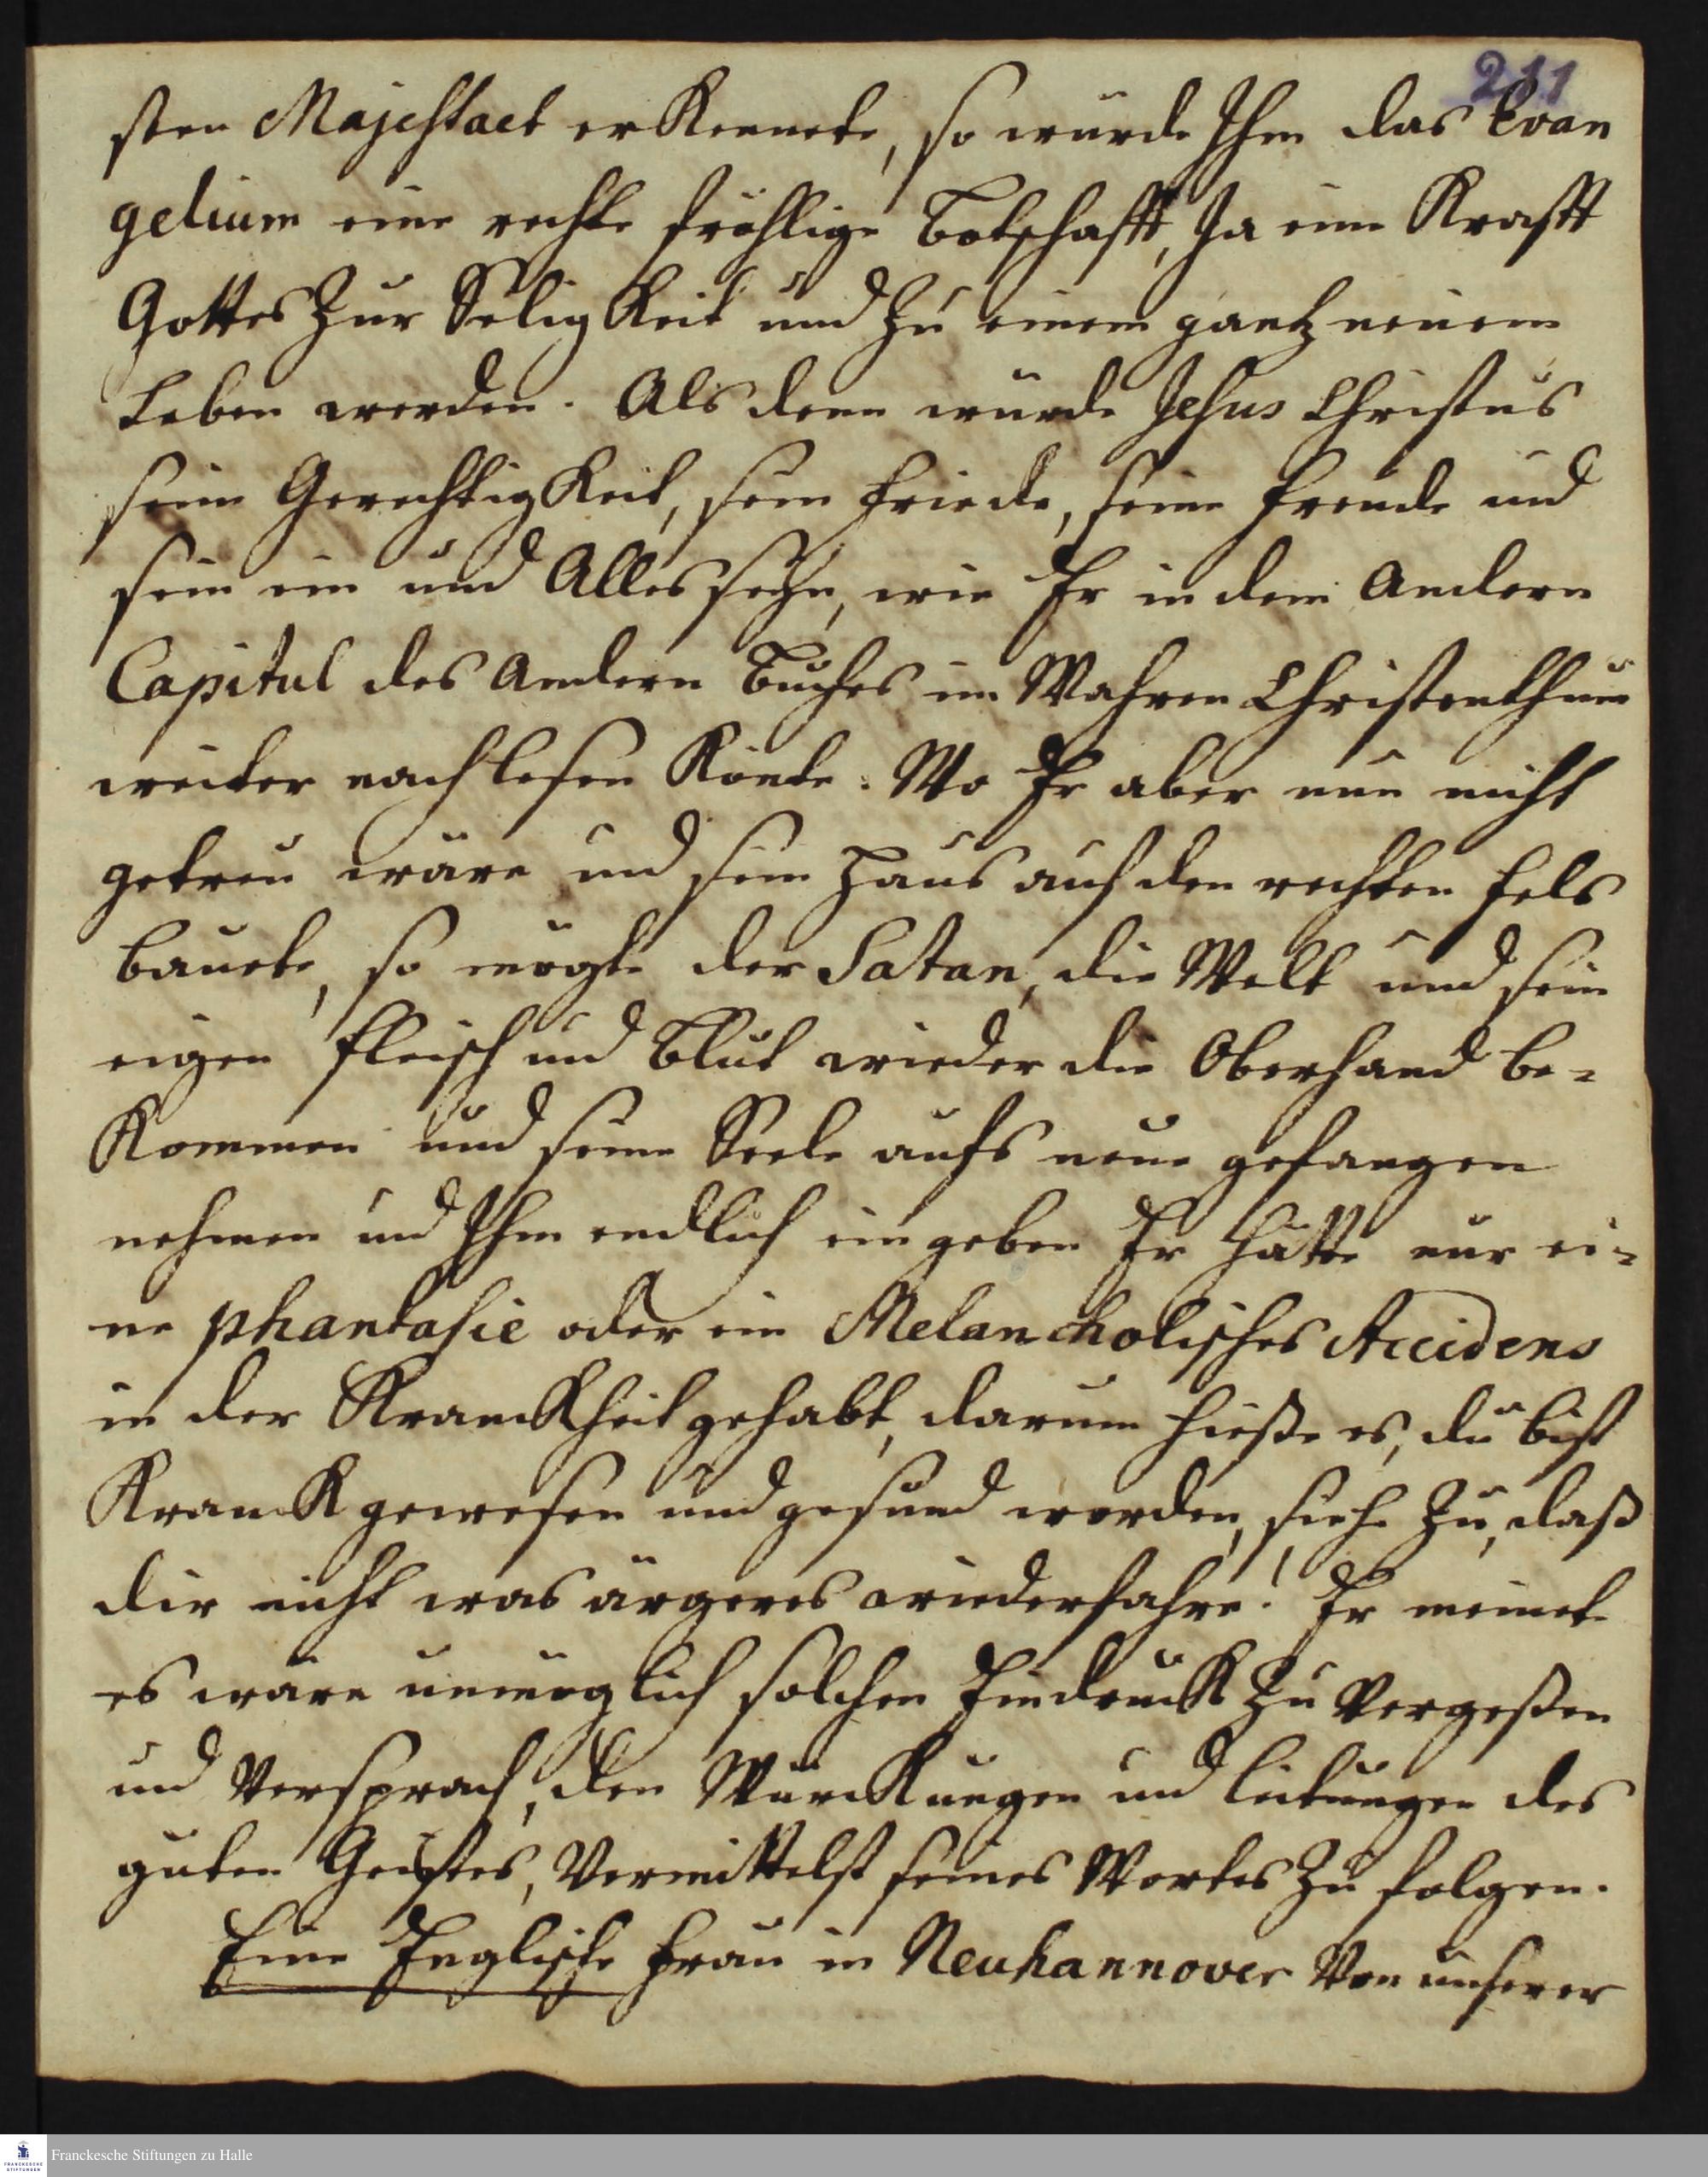 211
sten Majestaet erkennete, so würde Ihm das Evan
gelium eine rechte fröhlige Botschafft, Ja eine Krafft
Gottes zur Seligkeit und zu einem gantz neuem
Leben werden. Als denn würde Jesus Christus
seine Gerechtigkeit, sein Friede, seine Freude und
sein ein und Alles seyn, wie Er in dem Andern
Capitul des Andern Buches im Wahren Christenthum
weiter nachlesen könte. Wo Er aber nun nicht
getreu wäre und sein Haus auf den rechten Fels
bauete, so mögte der Satan, die Welt und sein
eigen Fleisch und Blut wieder die Oberhand be-
kommen und seine Seele aufs neue gefangen
nehmen und Ihm endlich eingeben Er hätte nur ei-
ne phantasie oder ein Melancholisches Accidens
in der Kranckheit gehabt, darum hieße es, du bist
Kranck gewesen und gesund worden, siehe zu, daß
dir nicht was ärgeres wiederfahre! Er meinete
es wäre unmöglich solchen Eindruck zu vergeßen
und versprach, den Würckungen und Leitungen des
guten Geistes, vermittelst seines Wortes zu folgen.
Eine Englische Frau in Neuhannover von unserer
Franckesche Stiftungen zu Halle
FRANCKESCHE
STIFTUNGEN